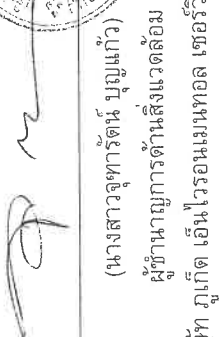 (นางสาวจุฑารัตน์ บุญแก้ว)
ผู้ชำนาญการด้านสิ่งแวดล้อม
ภูเก็ต เอ็นไวรอนเมนทอล